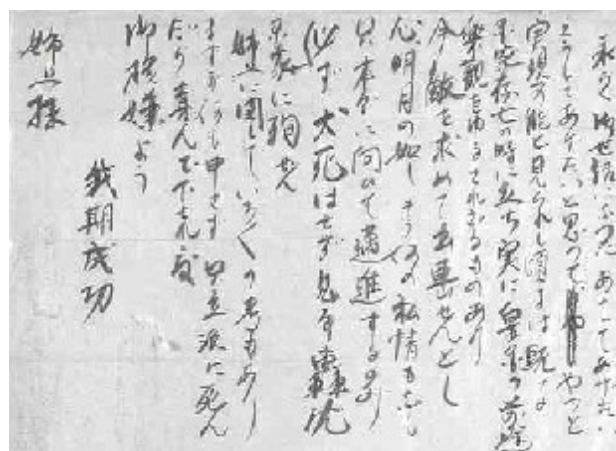 永らく御世話になった あゝしてあげたい
こうしてあげたいと思って やっと
実現可能と見られし頃には既に
国家存亡の時に立ち 実に皇国の前途
楽観を許されざるものあり
今敵を求めて出撃せんとし
心明月の如し もう何の私情もなし
只本分に向ひて邁進するのみ
必ず犬死はせず 見事轟沈
国家に殉ぜん
姉上に関していろ〱の事もあり
ますが何も申さず 只立派に死ん
だか 喜んで下され度
御機嫌よう
我期成功
姉上様